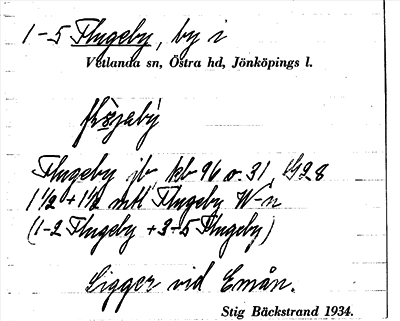 1-5 Flugeby, by i
Vetlanda sn, Östra hd, Jönköpings l.
Flugeby jb kb 96 o. 31, G28
1 1/2 + 1 1/2 mtl Flugeby W-n
(1-2 Flugeby + 3-5 Flugeby)
Ligger vid Emån.
Stig Bäckstrand 1934.